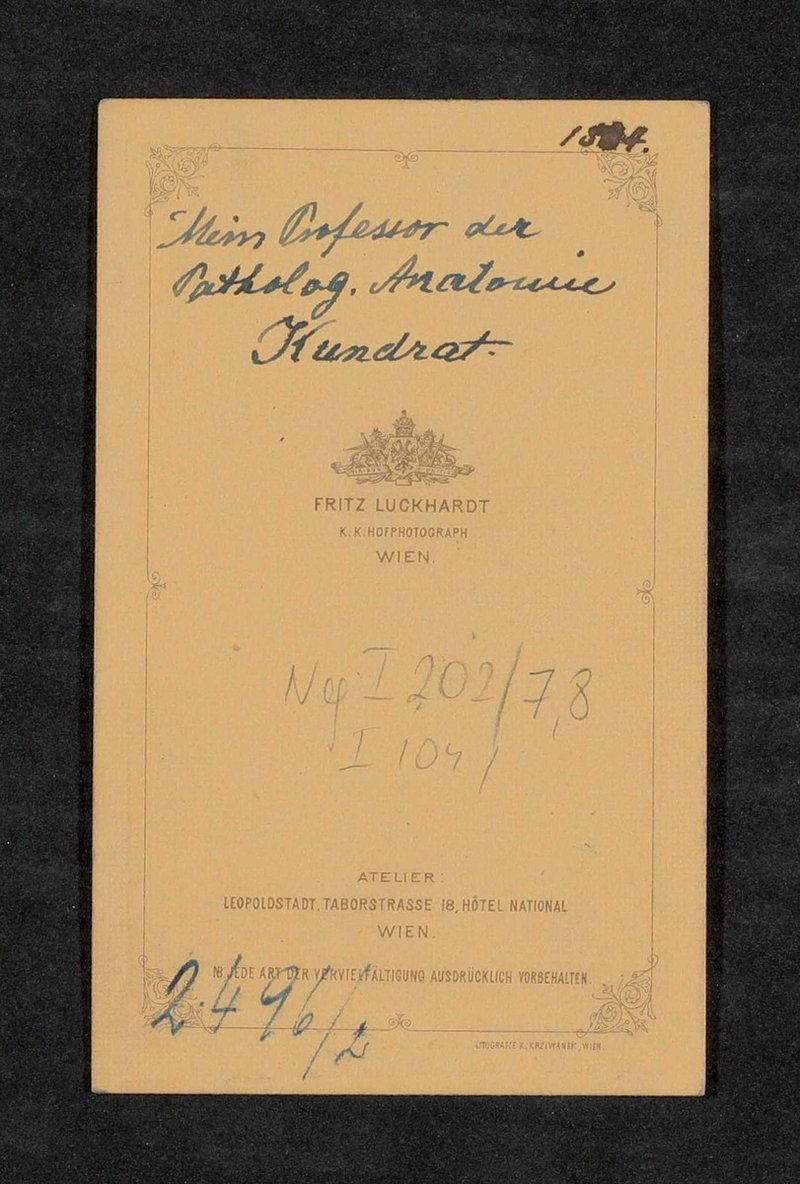 Mein Professor der
Patholog. Anatomie
Kundrat.
FRITZ LUCKHARDT
K. K. HOFPHOTOGRAPH
WIEN.
I 202/7,8
I 104/
ATELIER:
LEOPOLDSTADT, TABORSTRASSE 18, HÔTEL NATIONAL
WIEN.
NB. JEDE ART DER VERVIELFÄLTIGUNG AUSDRÜCKLICH VORBEHALTEN.
2.496/2
LITOGRAFIE K. KRZIWANEK, WIEN.